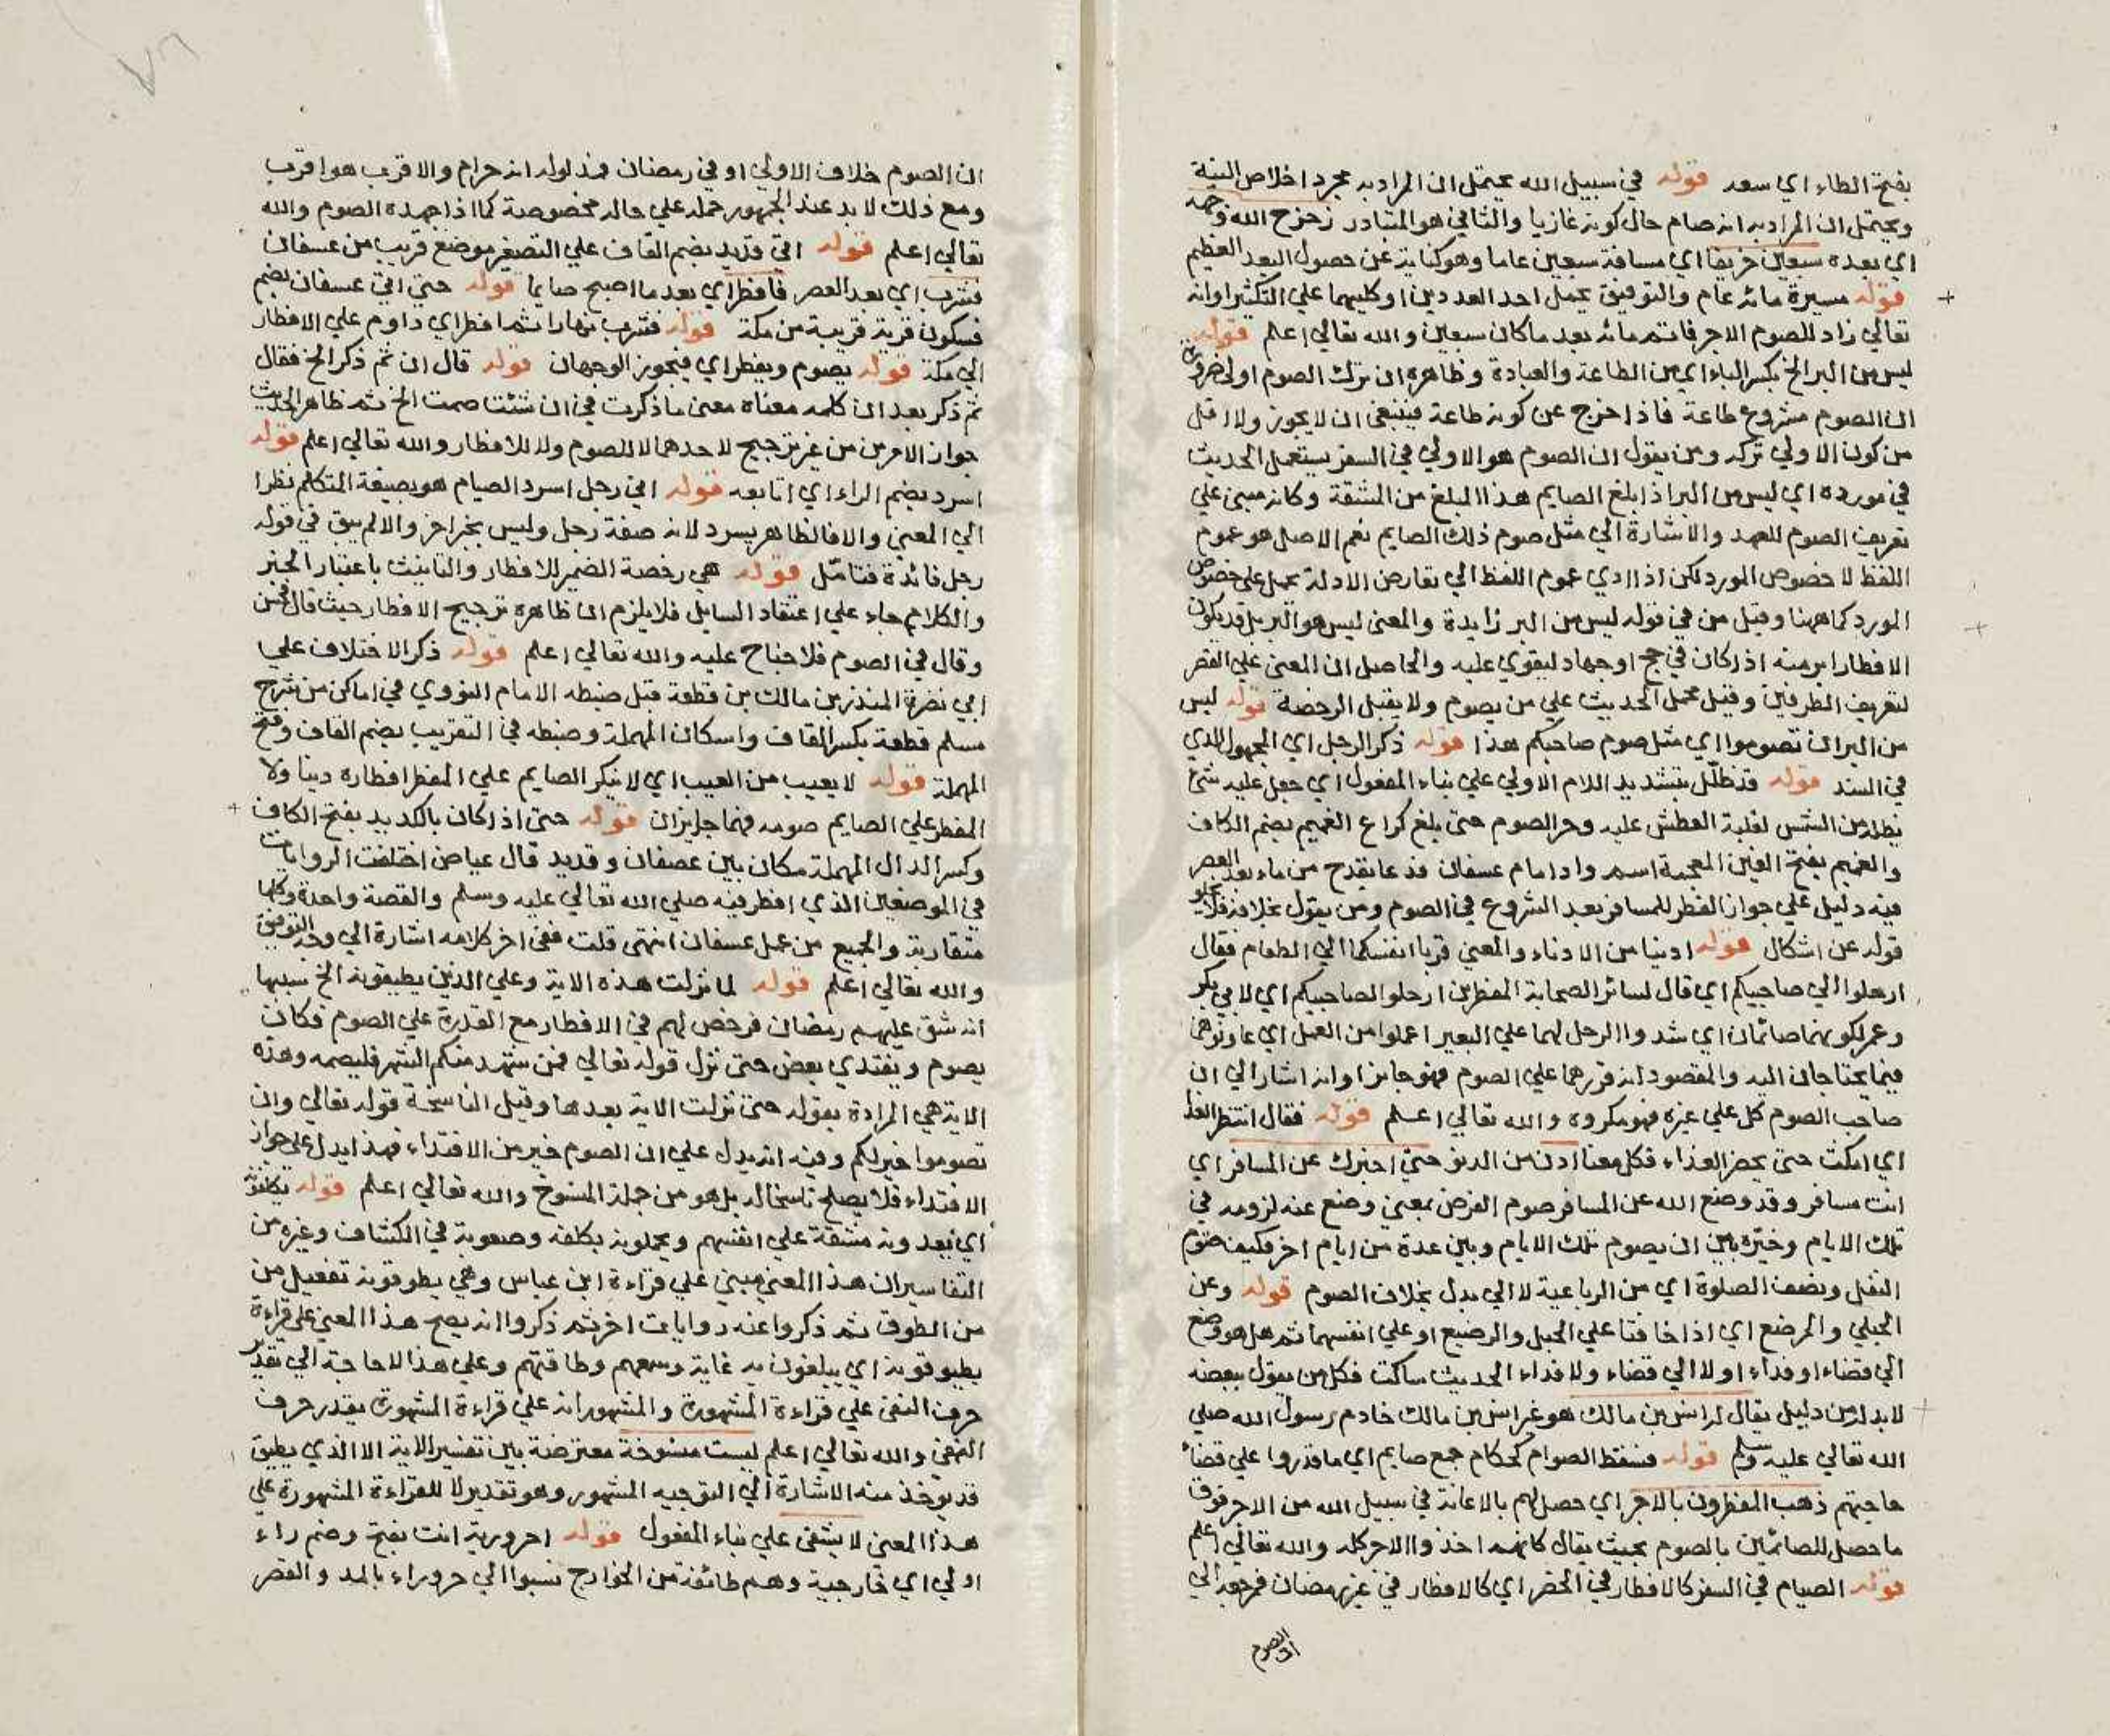 بفتح الطاء اي سعد قوله في سبيل الله يحتمل ان المراد به مجرد اخلاص النية
ويحتمل ان المراد به انه صام حال كونه غازيا والثاني هو المتبادر زحزح الله وجهه
اي بعده سبعين خريفا اي مسافة سبعين عاما وهو كناية عن حصول البعد العظيم
قوله مسيرة مائة عام والتوفيق بحمل احد العددين او كليهما علي التكثير او انه
تعالي زاد للصوم الاجر فاتمه مائة بعد ما كان سبعين والله تعالي اعلم قوله
ليس من البر الخ بكسر الباء اي من الطاعة والعبادة وظاهره ان ترك الصوم اولي ضرورة
ان الصوم مشروع طاعة فاذا خرج عن كونه طاعة فينبغي ان لا يجوز ولا اقل
من كون الاولي تركه ومن يقول ان الصوم هو الاولي في السفر يستعمل الحديث
في مورده اي ليس من البر اذا بلغ الصايم هذا المبلغ من المشقة وكانه مبني علي
تعريف الصوم للعهد والاشارة الي مثل صوم ذلك الصايم نعم الاصل هو عموم
اللفظ لا خصوص المورد لكن اذا ادي عموم اللفظ الي تعارض الادلة يحمل علي خصوص
المورد كما ههنا وقيل من في قوله ليس من البر زايدة والمعني ليس هو البر بل قد يكون
الافطار ابر منه اذا كان في حج او جهاد ليقوي عليه والحاصل ان المعني علي القصر
لتعريف الطرفين وقيل محمل الحديث علي من يصوم ولا يقبل الرخصة قوله ليس
من البر ان تصوموا اي مثل صوم صاحبكم هذا قوله ذكر الرجل اي المجهول الذي
في السند قوله قد ظلل بتشديد اللام الاولي علي بناء المفعول اي جعل عليه شئ
يظله من الشمس لغلبة العطش عليه وحر الصوم حتي بلغ كراع الغميم بضم الكاف
والغميم بفتح الغين المعجمة اسم واد امام عسفان فدعا بقدح من ماء بعد العصر
فيه دليل علي جواز الفطر للمسافر بعد الشروع في الصوم ومن يقول بخلافه فلا يخلو
قوله عن اشكال قوله ادنيا من الادناء والمعني قربا انفسكما الي الطعام فقال
ارحلوا الي صاحبيكم اي قال لسائر الصحابة المفطرين ارحلوا لصاحبيكم اي لابي بكر
وعمر لكونهما صائمان اي شدوا الرحل لهما علي البعير اعملوا من العمل اي عاونوهما
فيما يحتاجان اليه والمقصود انه قررهما علي الصوم فهو جايز او انه اشار الي ان
صاحب الصوم كل علي غيره فهو مكروه والله تعالي اعلم قوله فقال انتظر الغدا
اي امكث حتي يحضر الغداء فكل معنا ادن من الدنو حتي اخبرك عن المسافر اي
انت مسافر وقد وضع الله عن المسافر صوم الفرض بمعني وضع عنه لزومه في
تلك الايام وخيره بين ان يصوم تلك الايام وبين عدة من ايام اخر فكيف صوم
النفل ونصف الصلوة اي من الرباعية لا الي بدل بخلاف الصوم قوله وعن
الحبلي والمرضع اي اذا خافتا علي الحبل والرضيع او علي انفسهما ثم هل هو وضع
الي قضاء او فداء او لا الي قضاء ولا فداء الحديث ساكت فكل من يقول ببعضه
لا بد له من دليل يقال له انس بن مالك هو غير انس بن مالك خادم رسول الله صلي
الله تعالي عليه وسلم قوله فسقط الصوام كحكام جمع صايم اي ما قدروا علي قضاء
حاجتهم ذهب المفطرون بالاجر اي حصل لهم بالاعانة في سبيل الله من الاجر فوق
ما حصل للصائمين بالصوم بحيث يقال كانهم اخذوا الاجر كله والله تعالي اعلم
قوله الصيام في السفر كالافطار في الحضر اي كالافطار في غير رمضان فمرجعه الي
ان الصوم
ان الصوم خلاف الاولي او في رمضان فمدلوله انه حرام والاقرب هو اقرب
ومع ذلك لا بد عند الجمهور حمله علي حاله مخصوصة كما اذا جهده الصوم والله
تعالي اعلم قوله اتي قديد بضم القاف علي التصغير موضع قريب من عسفان
فشرب اي بعد العصر فافطر اي بعد ما اصبح صايما قوله حتي اتي عسفان بضم
فسكون قرية قريبة من مكة قوله فشرب نهارا ثم افطر اي داوم علي الافطار
الي مكة قوله يصوم ويفطر اي فيجوز الوجهان قوله قال ان ثم ذكر الخ فقال
ثم ذكر بعد ان كلمه معناه معني ما ذكرت في ان شئت صمت الخ ثم ظاهر الحديث
جواز الامرين من غير ترجيح لاحدهما لا للصوم ولا للافطار والله تعالي اعلم قوله
اسرد بضم الراء اي اتابعه قوله اني رجل اسرد الصيام هو بصيغة المتكلم نظرا
الي المعني والا فالظاهر يسرد لانه صفة رجل وليس بخبر اخر والا لم يبق في قوله
رجل فائدة فتامل قوله هي رخصة الضمير للافطار والتانيث باعتبار الخبر
والكلام جاء علي اعتقاد السايل فلا يلزم ان ظاهره ترجيح الافطار حيث قال فحسن
وقال في الصوم فلا جناح عليه والله تعالي اعلم قوله ذكر الاختلاف علي
ابي نضرة المنذر بن مالك بن قطعة قبل ضبطه الامام النووي في اماكن من شرح
مسلم قطعة بكسر القاف واسكان المهملة وضبطه في التقريب بضم القاف وفتح
المهملة قوله لا يعيب من العيب اي لا ينكر الصايم علي المفطر افطاره دينا ولا
المفطر علي الصايم صومه فهما جايزان قوله حتي اذا كان بالكديد بفتح الكاف
وكسر الدال المهملة مكان بين عصفان وقديد قال عياض اختلفت الروايات
في الموضع الذي افطر فيه صلي الله تعالي عليه وسلم والقصة واحدة وكلها
متقاربة والجميع من عمل عسفان انتهي قلت ففي اخر كلامه اشارة الي وجه التوفيق
والله تعالي اعلم قوله لما نزلت هذه الاية وعلي الذين يطيقونه الخ سببها
انه شق عليهم رمضان فرخص لهم في الافطار مع القدرة علي الصوم فكان
يصوم ويفتدي بعض حتي نزل قوله تعالي فمن شهد منكم الشهر فليصمه وهذه
الاية هي المرادة بقوله حتي نزلت الاية بعدها وقيل الناسخة قوله تعالي وان
تصوموا خير لكم وفيه انه يدل علي ان الصوم خير من الافتداء فهذا يدل علي جواز
الافتداء فلا يصلح ناسخا له بل هو من جملة المنسوخ والله تعالي اعلم قوله يكلفونه
اي يعدونه مشقة علي انفسهم ويحملونه بكلفه وصعوبة في الكشاف وغيره من
التفاسير ان هذا المعني مبني علي قراءة ابن عباس وهي يطوقونه تفعيل من
من الطوق ثم ذكروا عنه روايات اخر ثم ذكروا انه يصح هذا المعني علي قراءة
يطيوقونه اي يبلغون به غاية وسعهم وطاقتهم وعلي هذا لا حاجة الي تقدير
حرف النفي علي قراءة المشهورة والمشهور انه علي قراءة المشهورة يقدر حرف
النفي والله تعالي اعلم ليست منسوخة معترضة بين تفسير الاية الا الذي يطيق
قد يوخذ منه الاشارة الي التوجيه المشهور وهو تقدير لا للقراءة المشهورة علي
هذا المعني لا يشفي علي بناء المفعول قوله احرورية انت بفتح وضم راء
اولي اي خارجية وهم طائفة من الخوارج نسبوا الي حروراء بالمد والقصر